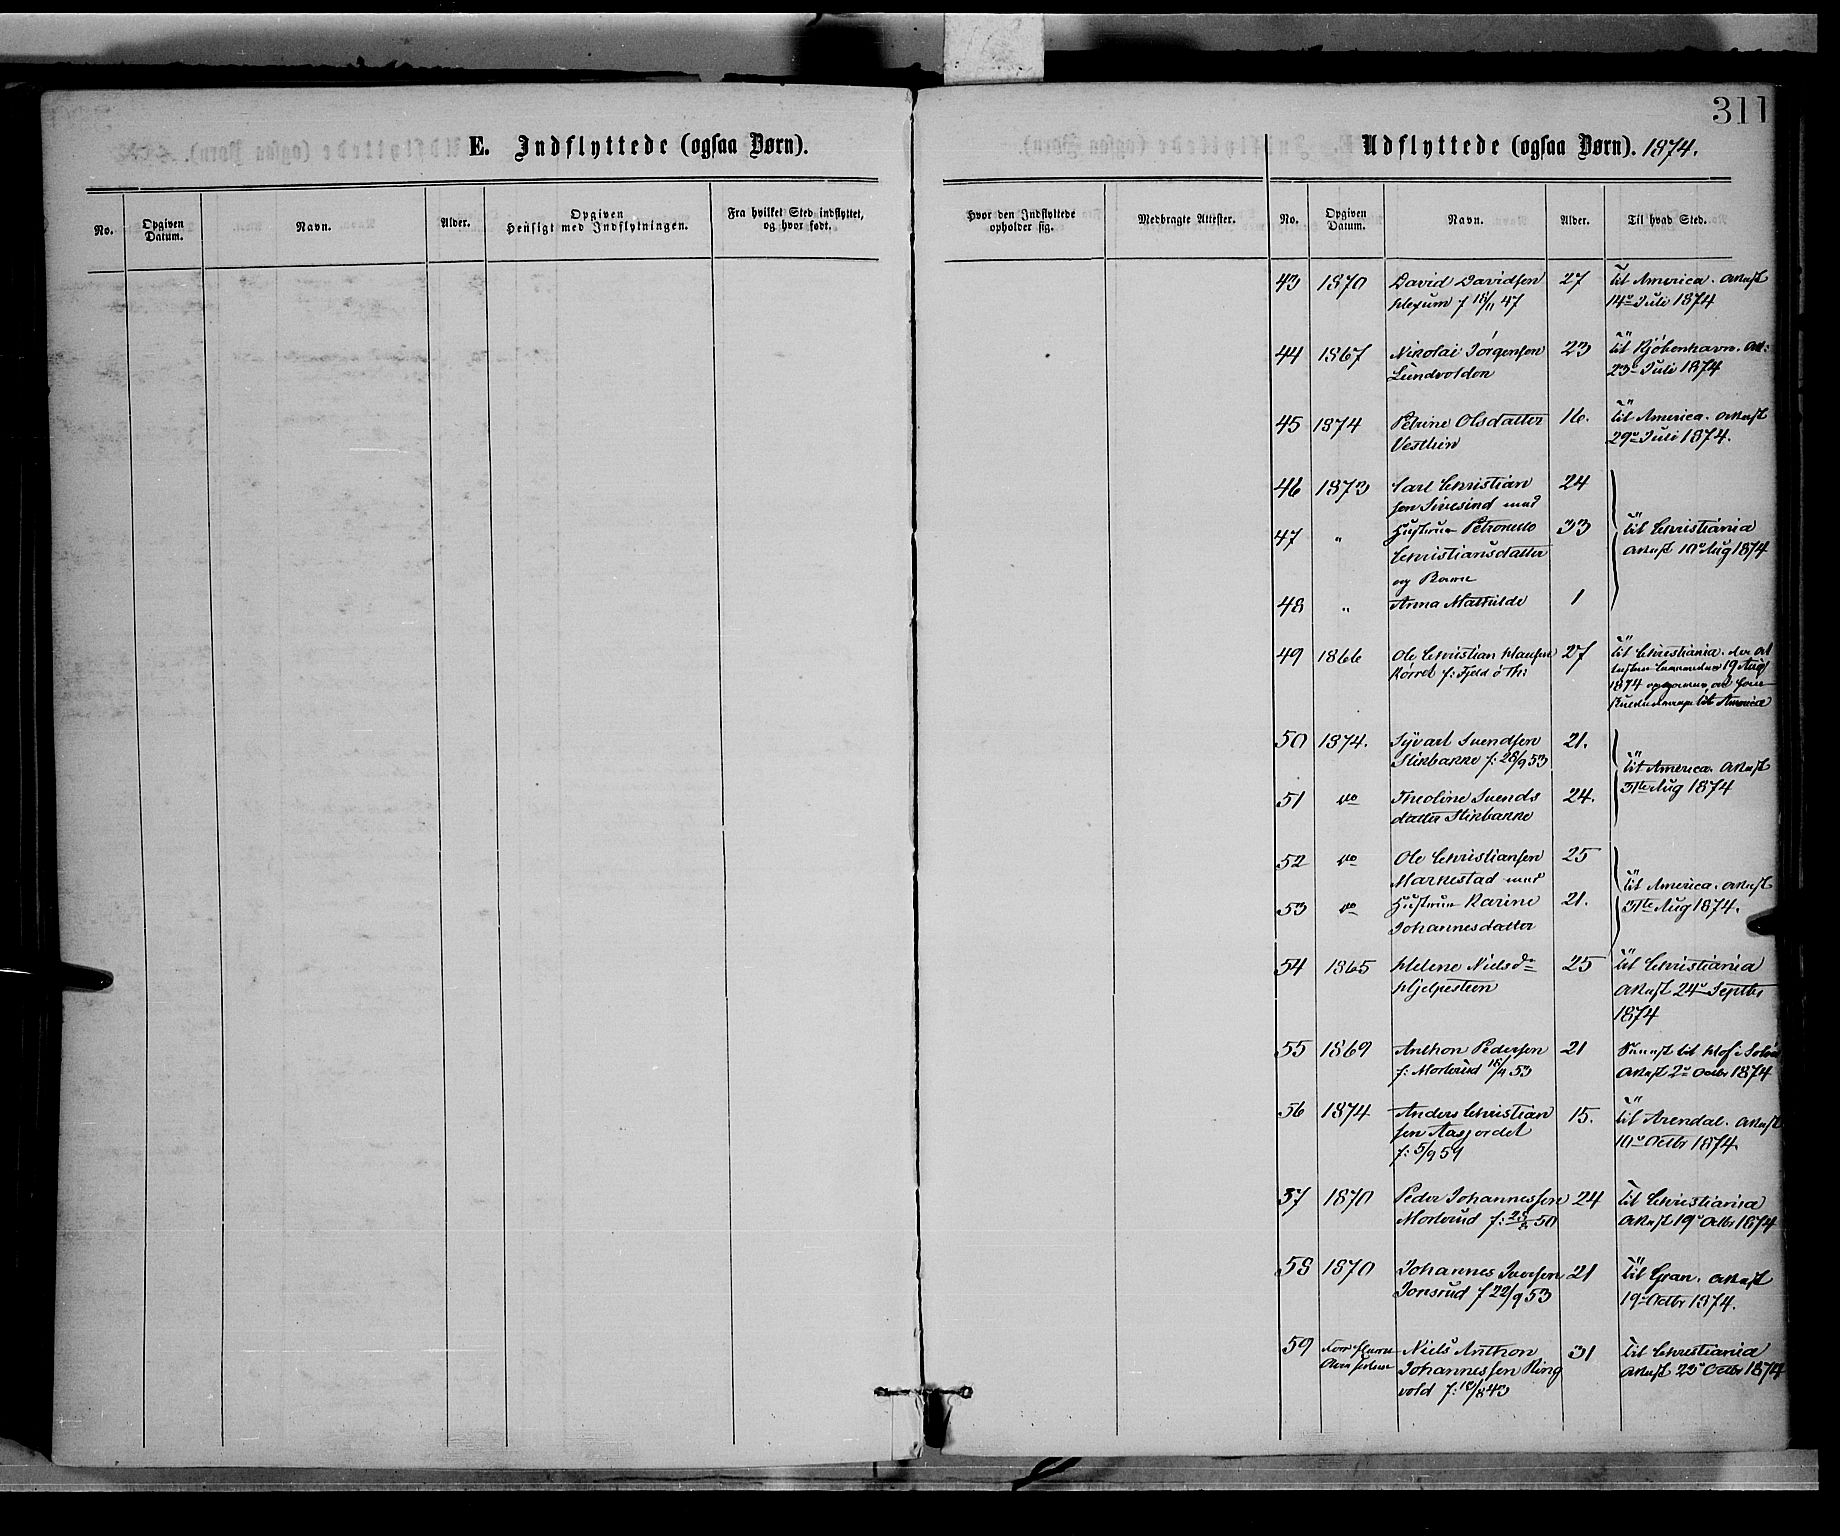 311
E. Indflyttede (ogsaa Børn).
Udflyttede (ogsaa Børn). 1874.
No.
Opgiven Datum.
Navn.
Alder.
Opgiven Hensigt med Indflytningen.
Fra hvilket Sted indflyttet, og hvor født.
Hvor den Indflyttede opholder sig.
Medbragte Attester.
No.
Opgiven Datum.
Navn.
Alder.
Til hvad Sted.
43 1870 David Davidsen 27 til America. attest
f 18/11 47 14de Juli 1874
44 1867 Nikolai Jørgensen 23 til Kjøbenhavn. att:
Lundvolden 23de Juli 1874
45 1874 Petrine Olsdatter 16. til America. attest
Vestlien 29de Juli 1874.
46 1873 Carl Christian 24
sen Sivesind med
47 " Hustrue Petronelle 33 til Christiania
Christiansdatter attest 10de Aug 1874
og Barn
48 " Anna Mathilde 1
49 1866 Ole Christian Hansen 27 til Christiania.
f: Fjeld ø Th: 19 Aug
1874
til America
50 1874. Syvert Svendsen 21.
Stikbakke f: 28/9 53 til America. attest
31te Aug 1874
51 do Theoline Svends 24.
datter Stikbakke
52 do Ole Christiansen 25
Markestad med til America. attest
53 do Hustrue Karine 21. 31te Aug 1874.
Johannesdatter
54 1865 Helene Nielsdr 25 til Christiania
Hjelpesteen attest 24de Septbr
1874
55 1869 Anthon Pedersen 21 til Hof i Solør
f: Morterud 18/4 53 attest 2de Octbr 1874
56 1874 Anders Christian 15. til Arendal. attest
sen Aasjordet 10de Octbr 1874.
f: 5/9 59
57 1870 Peder Johannessen 24 til Christiania
Morterud f: 50 attest 19de Octbr 1874
58 1870 Johannes Iversen 21 til Gran. attest
Jonsrud f 22/9 53 19de Octbr 1874.
59 Niels Anthon 31 til Christiania
Johannessen Ring attest 23de Octbr 1874
vold f: 10/8 43